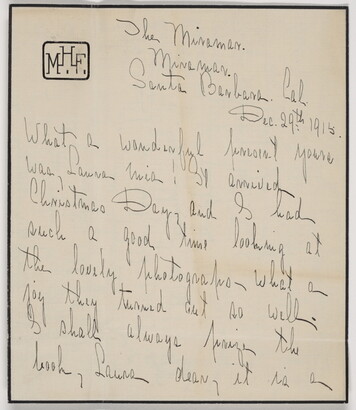 M.H.F.
The Miramar.
Miramar.
Santa Barbara. Cal.
Dec. 29th 1915.
What a wonderful present yours
was, Laura mia! It arrived
Christmas Day, and I had
such a good time looking at
the lovely photographs - what a
joy they turned out so well.
I shall always prize the
book, Laura dear, it is a